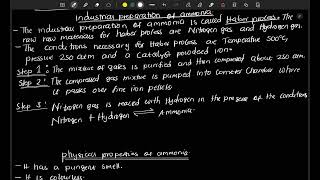 Industrial preparation of ammonia
- The industrial preparation of ammonia is called Haber process. The
raw materials for haber process are Nitrogen gas and Hydrogen gas.
- The conditions necessary for Haber process are Temperature 500°C,
pressure 250 atm and a Catalyst powdered iron.
Step 1: The mixture of gases is purified and then compressed about 250 atm.
Step 2: The compressed gas mixture is pumped into Converter Chamber where
it passes over fine iron pellets.
Step 3: Nitrogen gas is reacted with Hydrogen in the presence of the conditions
Nitrogen + Hydrogen ⇌ Ammonia.
physical properties of ammonia
- It has a pungent smell.
- It is colourless.